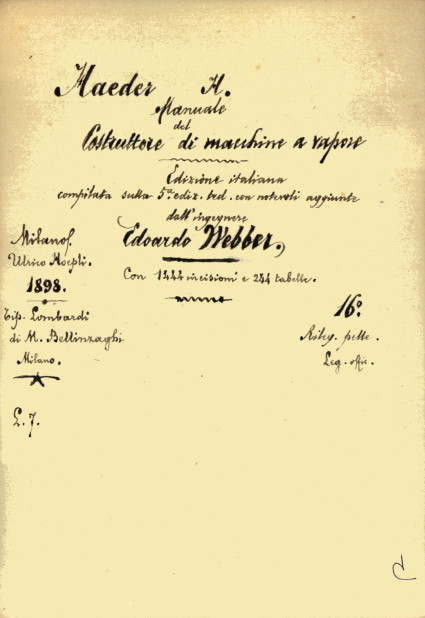 Haeder H.
Manuale
del
Costruttore di macchine a vapore
Edizione italiana
compilata sulla 5ª ediz. ted. con notevoli aggiunte
dall'ingegnere
Edoardo Webber.
Milano
Ulrico Hoepli.
1898.
Tip. Lombardi
di M. Bellinzaghi
Milano.
Con 1444 incisioni e 244 tabelle.
16º
Rileg. pelle.
Leg. offic.
L. 7.